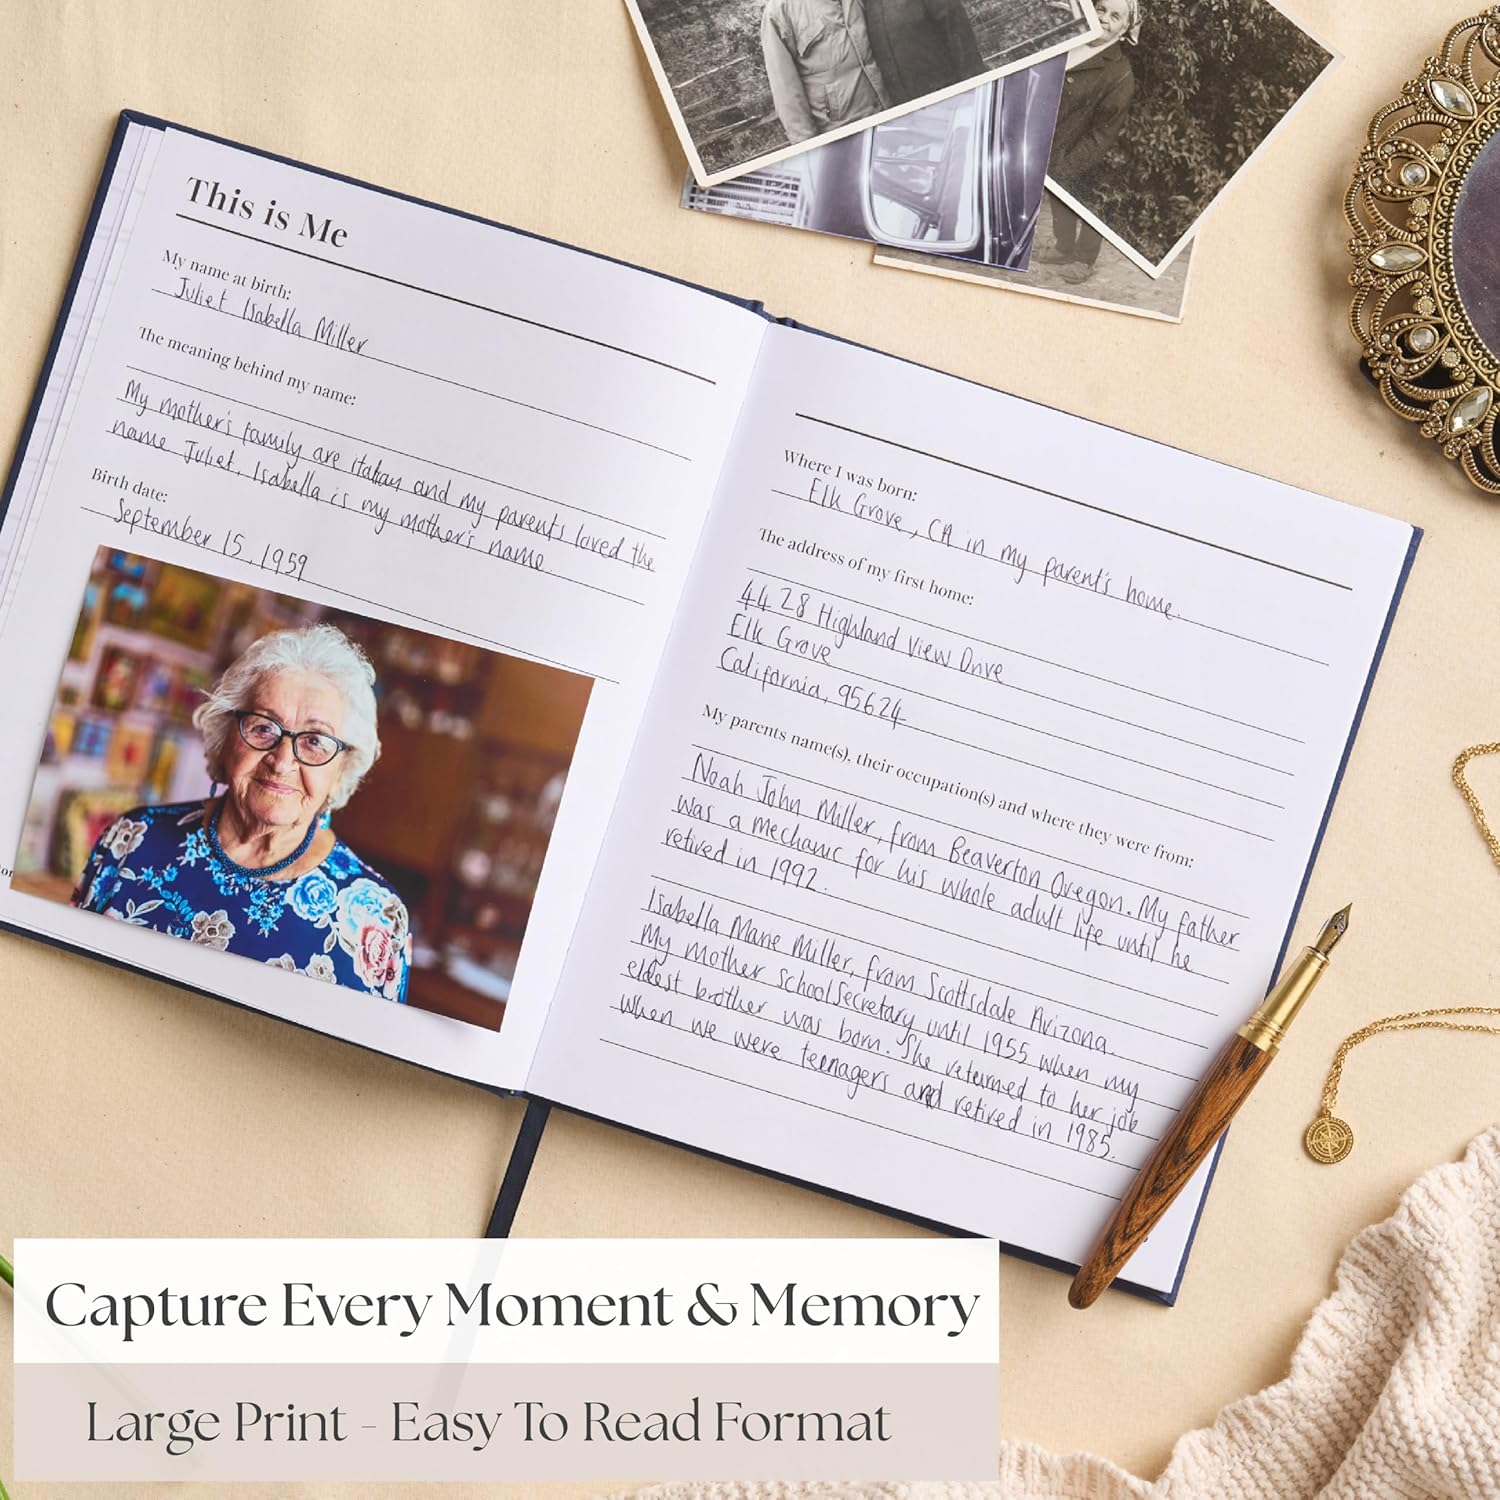 This is Me
My name at birth:
Juliet Isabella Miller
The meaning behind my name:
My mother's family are italian and my parents loved the
name Juliet. Isabella is my mother's name.
Birth date:
September 15, 1959
Where I was born:
Elk Grove, CA in my parent's home.
The address of my first home:
4428 Highland View Drive
Elk Grove
California, 95624
My parents name(s), their occupation(s) and where they were from:
Noah John Miller, from Beaverton Oregon. My father
was a mechanic for his whole adult life until he
retired in 1992.
Isabella Marie Miller, from Scottsdale Arizona.
My mother school Secretary until 1955 when my
eldest brother was born. She returned to her job
when we were teenagers and retired in 1985.
Capture Every Moment & Memory
Large Print - Easy To Read Format